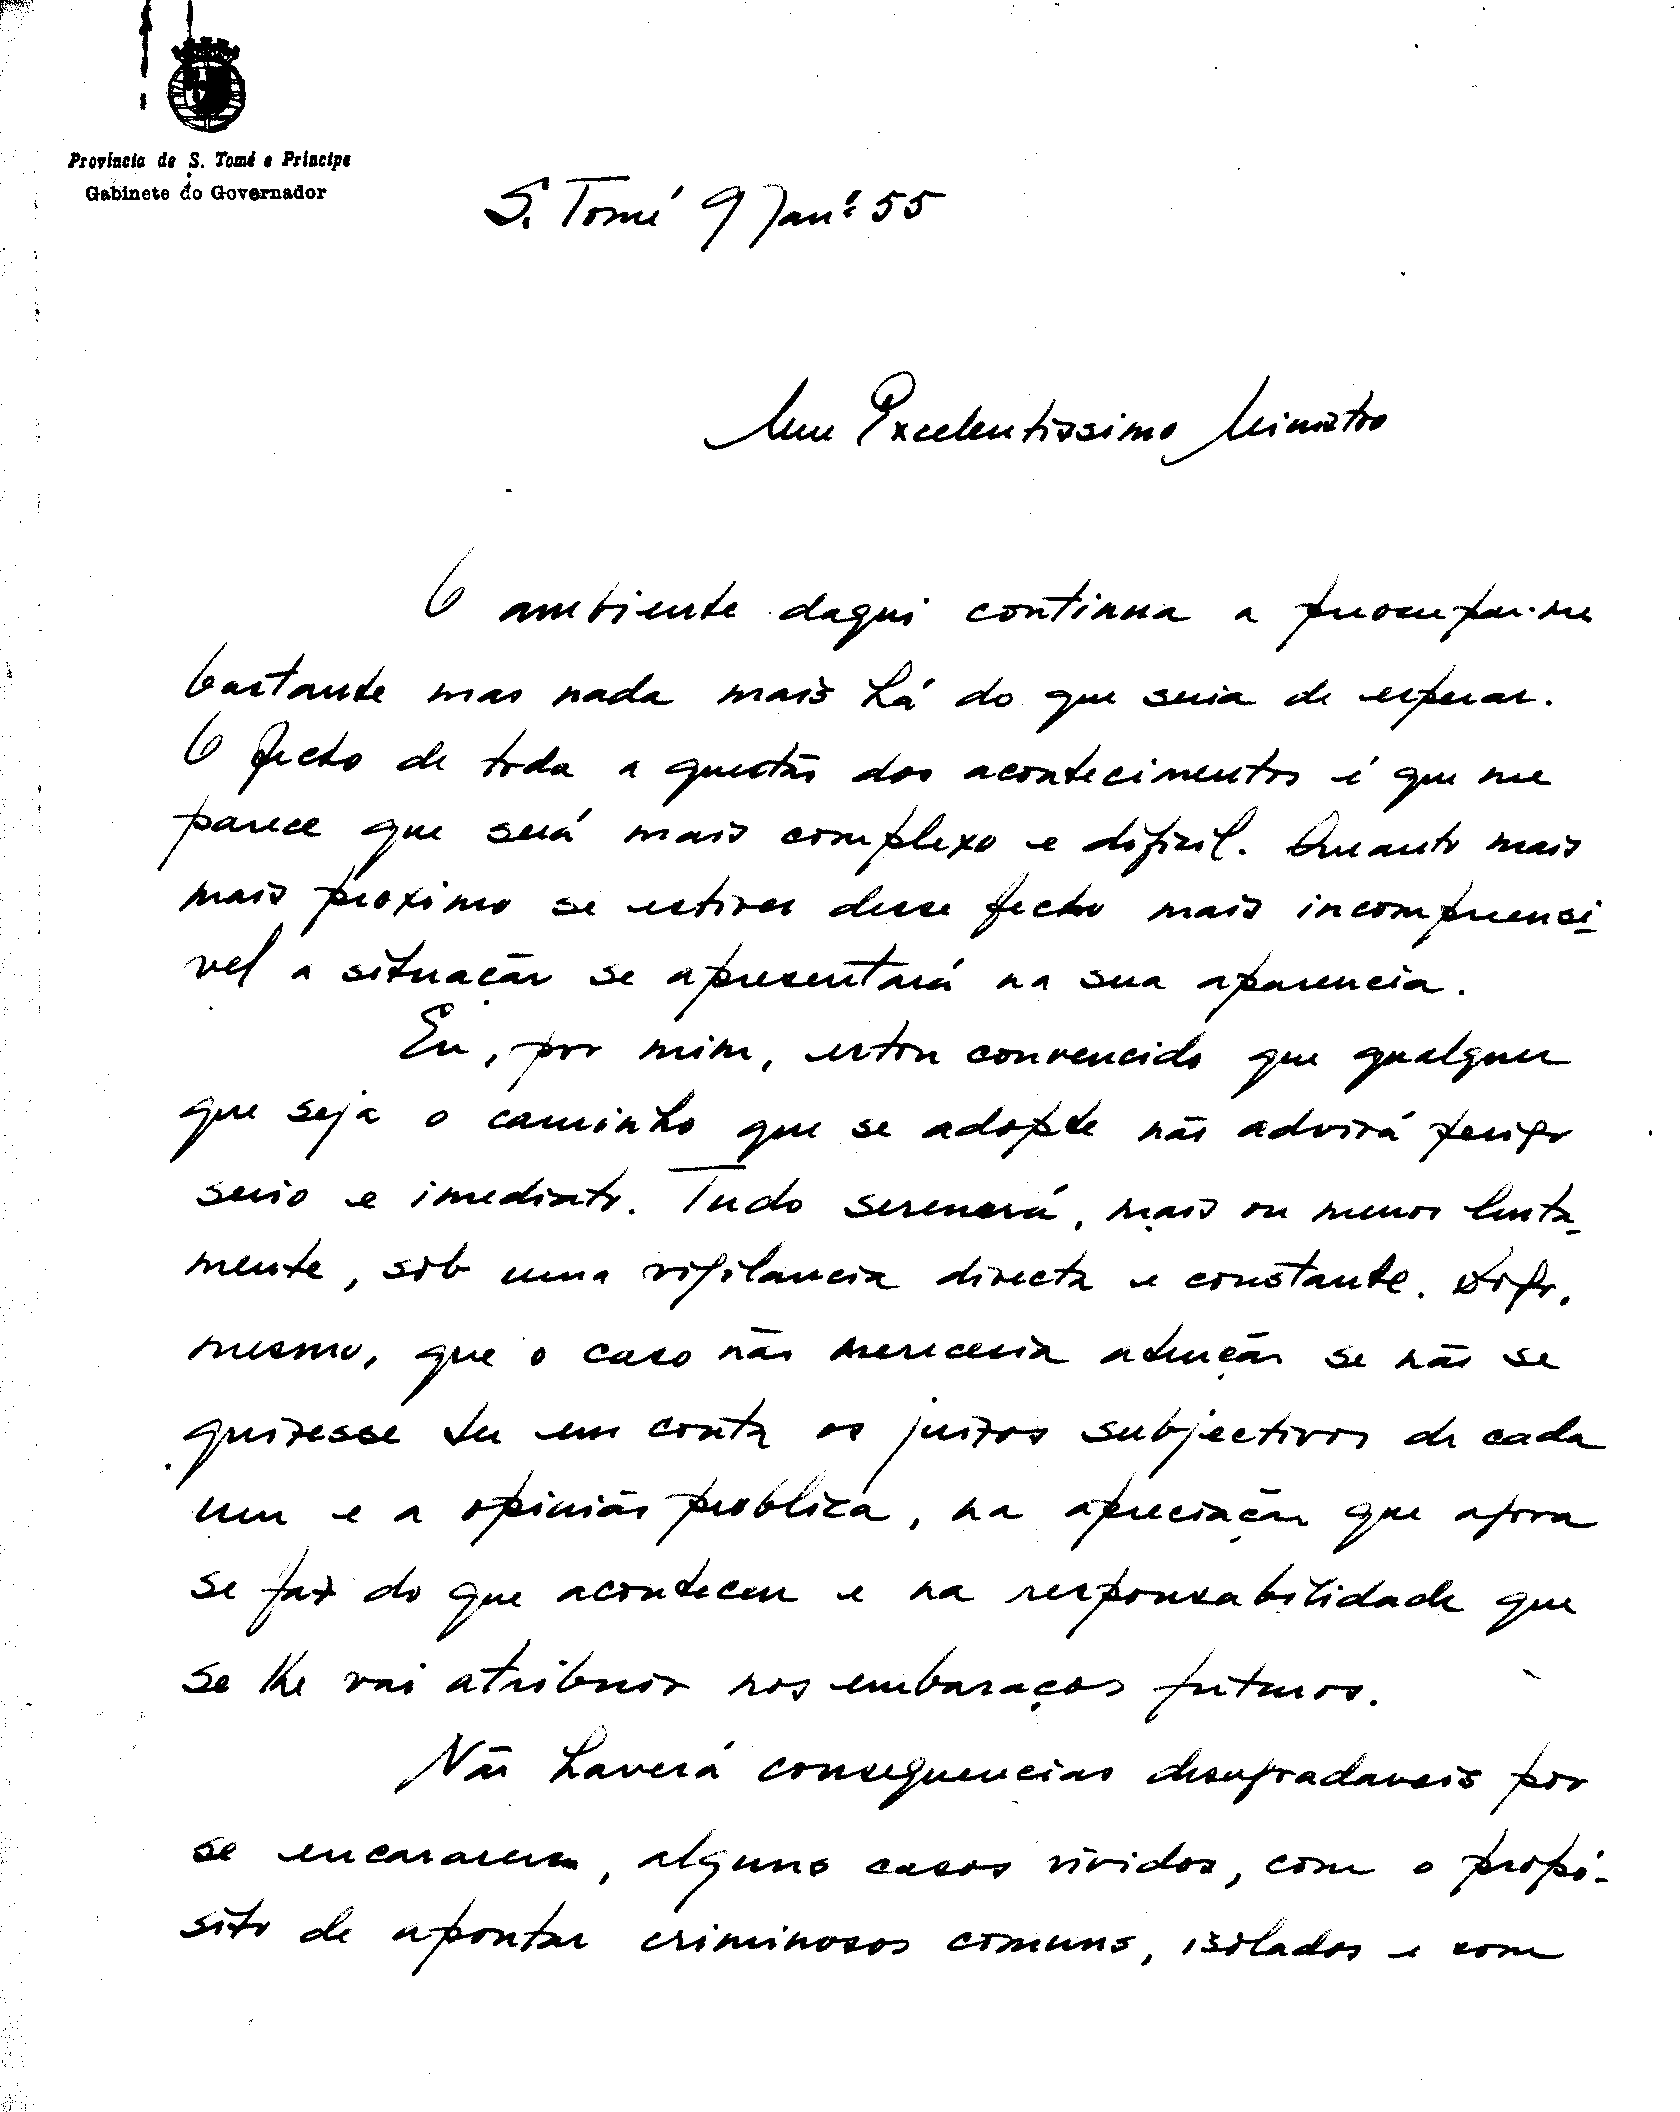 Província de S. Tomé e Príncipe
Gabinete do Governador
S. Tomé 9 Janº 55
Meu Excelentissimo Ministro
O ambiente daqui continua a preocupar-me
bastante mas nada mais há do que seria de esperar.
O fecho de toda a questão dos acontecimentos é que me
parece que será mais complexo e dificil. Quanto mais
mais proximo se estiver desse fecho mais incompreensi-
vel a situação se apresentará na sua aparencia.
Eu, por mim, estou convencido que qualquer
que seja o caminho que se adopte não advirá perigo
serio e imediato. Tudo serenará, mais ou menos lenta-
mente, sob uma vigilancia directa e constante. Digo,
mesmo, que o caso não mereceria atenção se não se
quizesse ter em conta os juizos subjectivos de cada
um e a opinião publica, na apreciação que agora
se faz do que aconteceu e na responsabilidade que
se lhe vai atribuir nos embaraços futuros.
Não haverá consequencias desagradaveis por
se encararem, alguns casos vividos, com o propó-
sito de apontar criminosos comuns, isolados e com